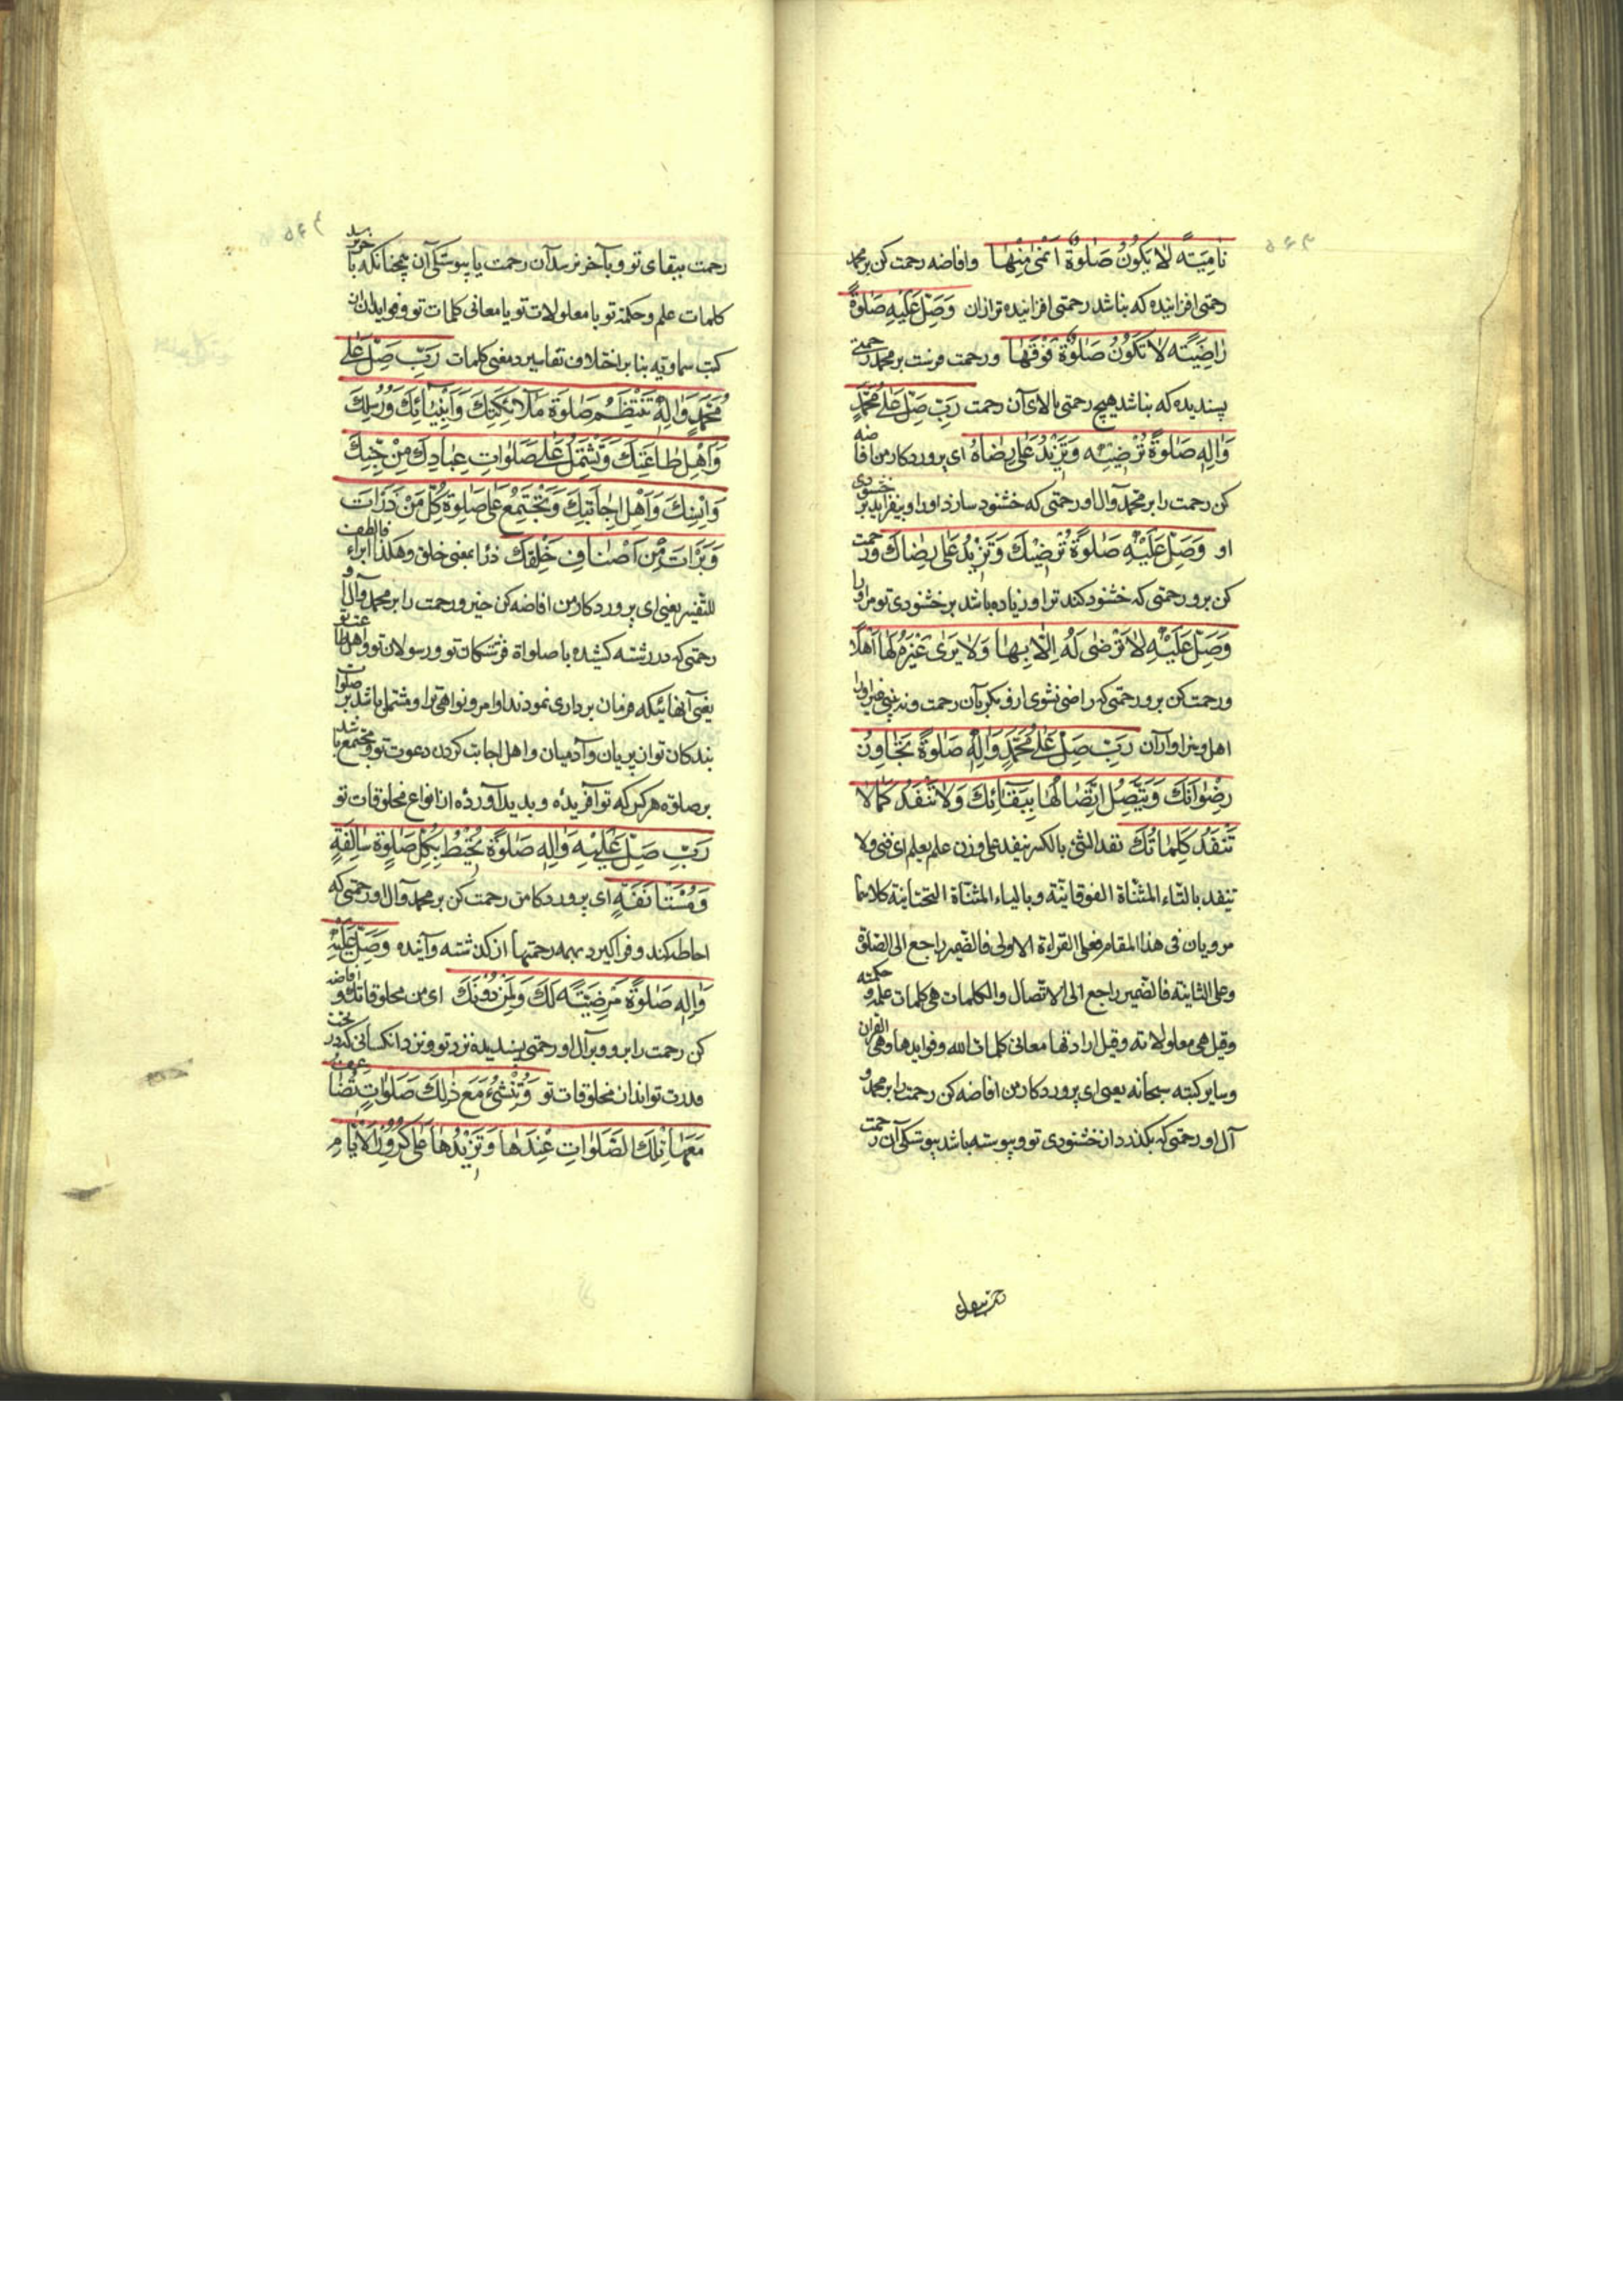 نامِیَةً لا یَکُونُ صَلوةٌ اَنْمی مِنْها وافاضه رحمت کن بر محمد
رحمتی افزاینده که نباشد رحمتی افزاینده تر از ان وَصَلِّ عَلَیْهِ صَلوةً
راضِیَةً لا تَکُونُ صَلوةٌ فَوْقَها ورحمت فرست بر محمد رحمتی
پسندیده که نباشد هیچ رحمتی بالای آن رحمت رَبِّ صَلِّ عَلی مُحَمَّدٍ
وَالِهِ صَلوةً تُرْضیهِ وَتَزیدُ عَلی رِضاهُ ای پروردکار من افاضه
کن رحمت را بر محمد وآل او رحمتی که خشنود سازد او را وبیفزاید بر خشنودی
او وَصَلِّ عَلَیْهِ صَلوةً تُرْضیكَ وَتَزیدُ عَلی رِضاكَ ورحمت
کن برو رحمتی که خشنود کند ترا وزیاده باشد بر خشنودی تو مر او را
وَصَلِّ عَلَیْهِ لا تَرْضی لَهُ اِلّا بِها وَلا یَری غَیْرَهُ لَها اَهْلًا
ورحمت کن برو رحمتی که راضی نشوی از و مکر بآن رحمت ونه بینی غیر او را
اهل وسزاوار آن رَبِّ صَلِّ عَلی مُحَمَّدٍ وَالِهِ صَلوةً تَجاوِزُ
رِضْوانَكَ وَیَتَّصِلُ اِتِّصالُها بِبَقائِكَ وَلا تَنْفَدُ کَما لا
تَنْفَدُ کَلِماتُكَ نفد الشئ بالکسر ینفد علی وزن علم یعلم ای فنی ولا
تنفد بالتاء المثناة الفوقانیة وبالیاء المثناة التحتانیة کلاهما
مرویان فی هذا المقام فعلی القراءة الاولی فالضمیر راجع الی الصلوة
وعلی الثانیة فالضمیر راجع الی الاتصال والکلمات هی کلمات علمه وحکمته
وقیل هی معلولاته وقیل ارادتها معانی کلمات الله وفوایدها وهی القران
وسایر کتبه سبحانه یعنی ای پروردکار من افاضه کن رحمت را بر محمد و
آل او رحمتی که بکذرد از خشنودی تو وپیوسته باشد پیوستکی آن رحمت
رحمت ببقای تو وبآخر نرسد آن رحمت یا پیوستکی آن همچنانکه بآخر نرسد
کلمات علم وحکمة تو یا معلولات تو یا معانی کلمات تو وفواید ان از
کتب سماویه بنا بر اختلاف تفاسیر در معنی کلمات رَبِّ صَلِّ عَلی
مُحَمَّدٍ وَالِهِ تَنْتَظِمُ صَلوةَ مَلائِکَتِكَ وَاَنْبِیائِكَ وَرُسُلِكَ
وَاَهْلِ طاعَتِكَ وَتَشْتَمِلُ عَلی صَلَواتِ عِبادِكَ مِنْ جِنِّكَ
وَاِنْسِكَ وَاَهْلِ اِجابَتِكَ وَتَجْتَمِعُ عَلی صَلوةِ کُلِّ مَنْ ذَرَاْتَ
وَبَرَاْتَ مِنْ اَصْنافِ خَلْقِكَ ذرا بمعنی خلق وهکذا ابراء فالعطف
للتفسیر یعنی ای پروردکار من افاضه کن خیر ورحمت را بر محمد وآل او
رحمتی که در رشته کشیده با صلواة فرشتکان تو ورسولان تو واهل طاعت تو
یعنی آنهائیکه فرمان برداری نمودند اوامر ونواهی ترا ومشتمل باشد بر صلوات
بندکان تو از پریان وآدمیان واهل اجابت کردن دعوت تو ومجتمع باشد
بر صلوة هرکس که تو آفریدۀ وبدید آوردۀ از انواع مخلوقات تو
رَبِّ صَلِّ عَلَیْهِ وَالِهِ صَلوةً تُحیطُ بِکُلِّ صَلوةٍ سالِفَةٍ
وَمُسْتَانَفَةٍ ای پروردکا من رحمت کن بر محمد وآل او رحمتی که
احاطه کند وفرا کیرد بهمه رحمتها از کذشته وآینده وَصَلِّ عَلَیْهِ
وَالِهِ صَلوةً مَرْضِیَّةً لَكَ وَلِمَنْ دُونَكَ ای من مخلوقاتك وافاضه
کن رحمت را برو وبر آل او رحمتی پسندیده نزد تو ونزد انکسانی که در تحت
قدرت تواند از مخلوقات تو وَتُنْشِئُ مَعَ ذلِكَ صَلَواتٍ تُضاعِفُ
مَعَها تِلْكَ الصَّلَواتِ عِنْدَها وَتَزیدُها عَلی کُرُورِ الْاَیّامِ